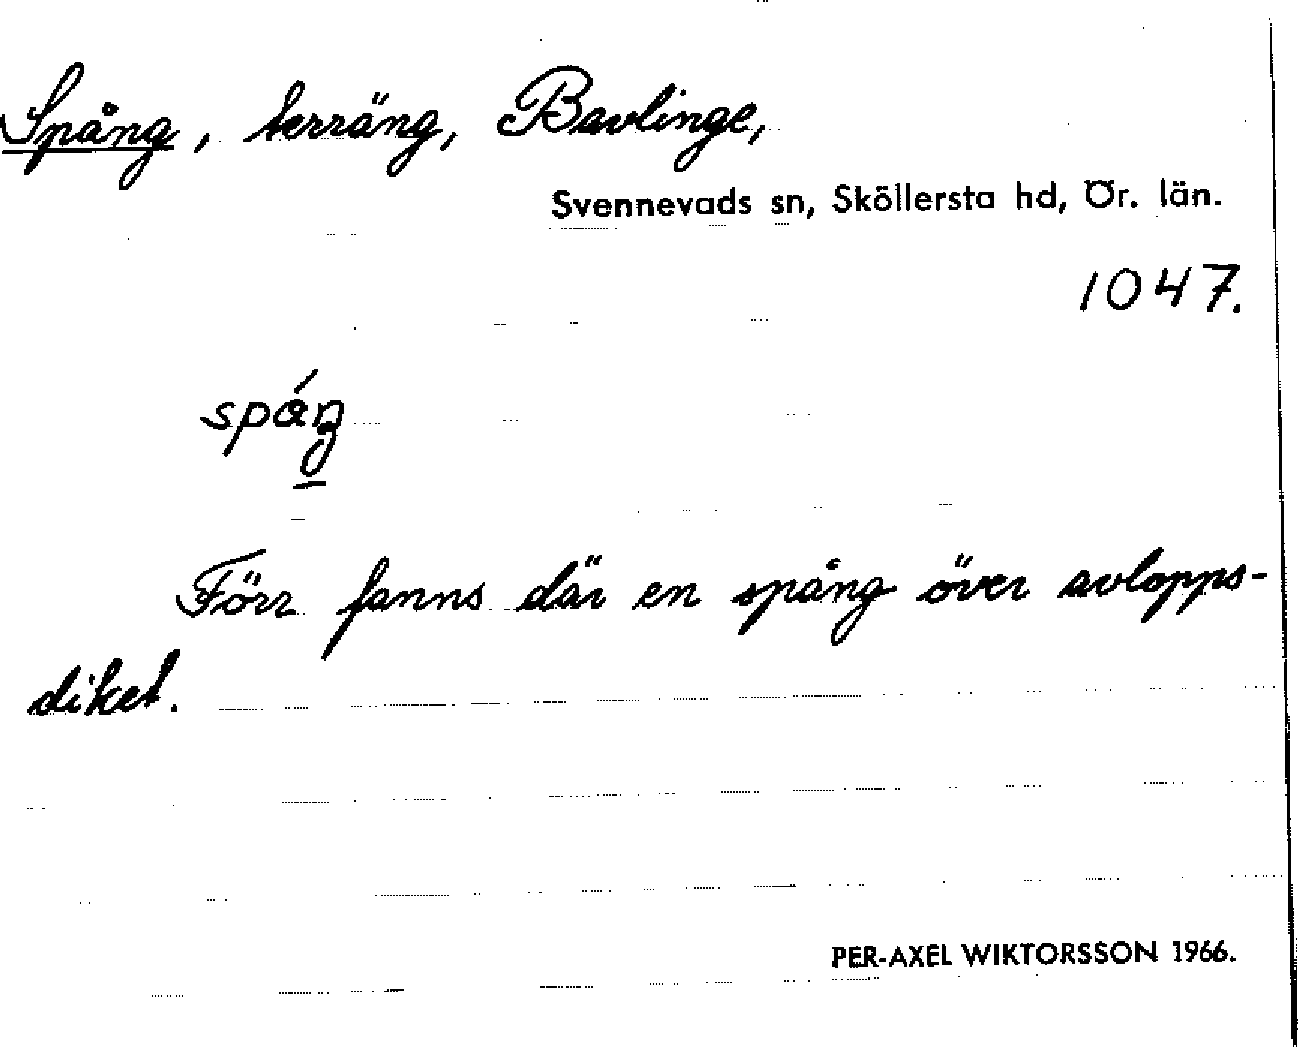 Spång, terräng, Bavlinge,
Svennevads sn, Sköllersta hd, Ör. län.
1047.
spáŋ
Förr fanns där en spång över avlopps-
diket.
PER-AXEL WIKTORSSON 1966.